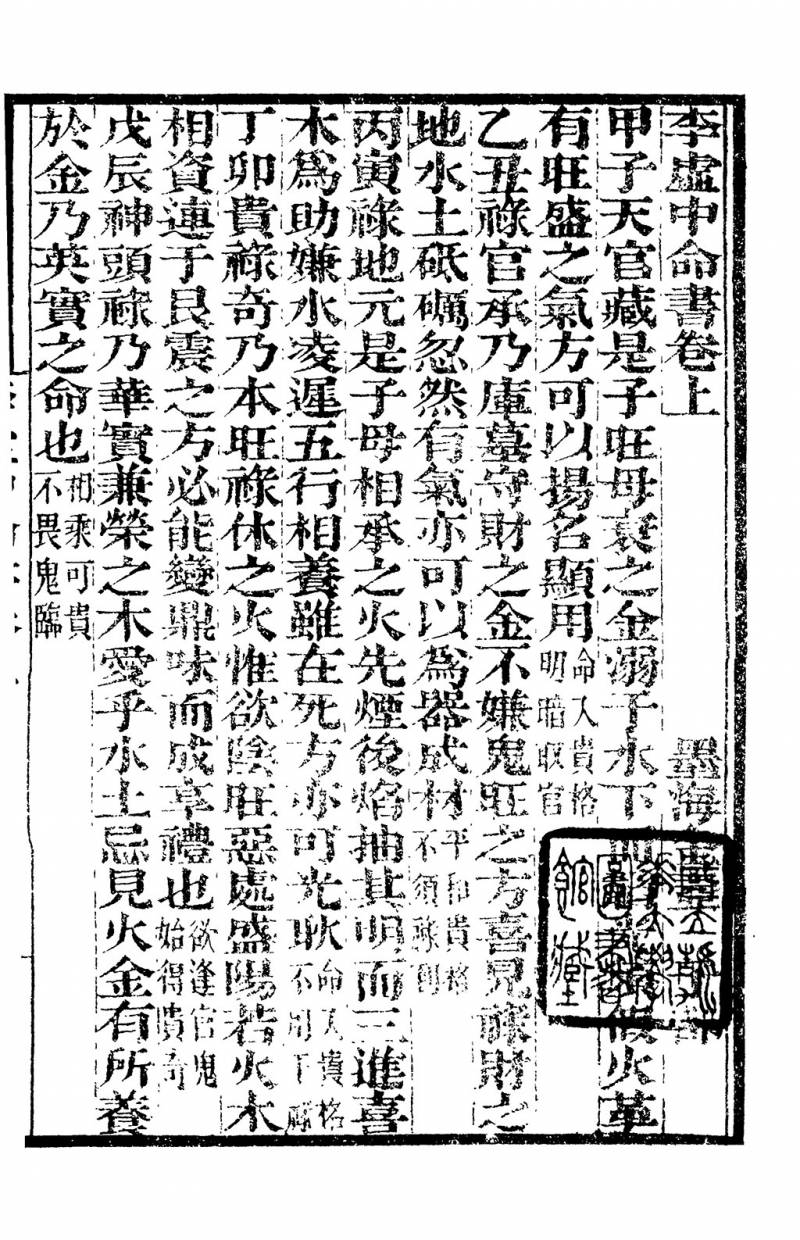 李虛中命書卷上
墨海金壺 部
甲子天官藏是子旺母衰之金溺于水下而 假火革
有旺盛之氣方可以揚名顯用命入貴格明暗取官
乙丑祿官承乃庫墓守財之金不嫌鬼旺之方喜見祿財之
地水土砥礪忽然有氣亦可以爲器成材平和貴格不須
丙寅祿地元是子母相承之火先煙後焰抽其明而三進喜
木爲助嫌水凌遲五行相養雖在死方亦可光耿命入貴格不用下
丁卯貴祿奇乃本旺祿休之火惟欲陰旺惡處盛陽若火木
相資連于艮震之方必能變鼎味而成享禮也欲逢官鬼始得貴奇
戊辰神頭祿乃華實兼榮之木愛乎水土忌見火金有所養
於金乃英實之命也相乘可貴不畏鬼臨